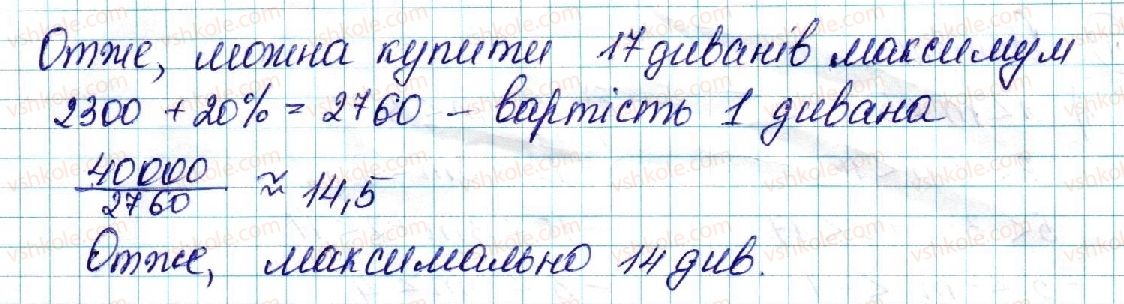 Отже, можна купити 17 диванів максимум
2300 + 20% = 2760 – вартість 1 дивана
40000
2760
≈ 14,5
Отже, максимально 14 див.